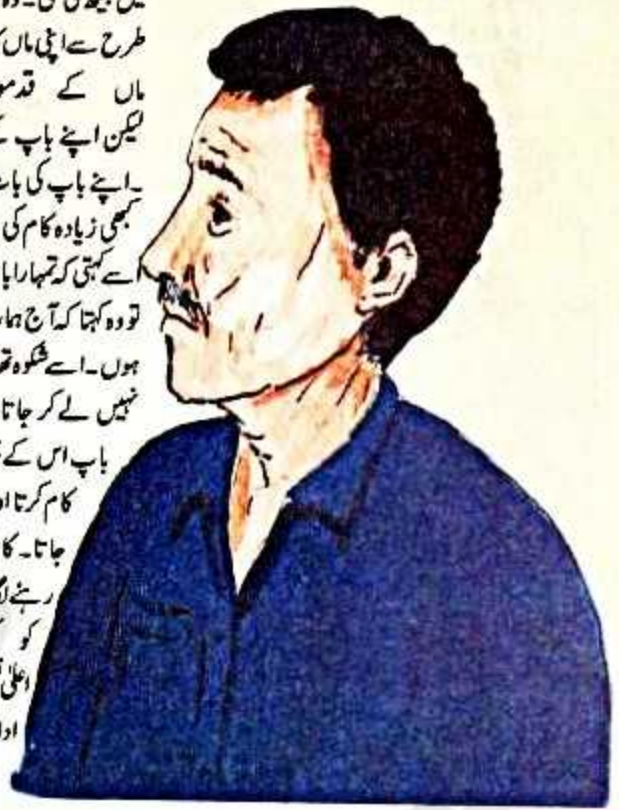 طرح سے اپنی ماں
ماں کے قدمو
لیکن اپنے باپ
۔اپنے باپ کی بات
کبھی زیادہ کام کی
اسے کہتی کہ تمہارا با
تو وہ کہتا کہ آج ہما
ہوں۔ اسے شکوہ تھ
نہیں لے کر جاتا
باپ اس کے
کام کرتا او
جاتا۔ کا
رہنے
کو
اعلیٰ
ادا